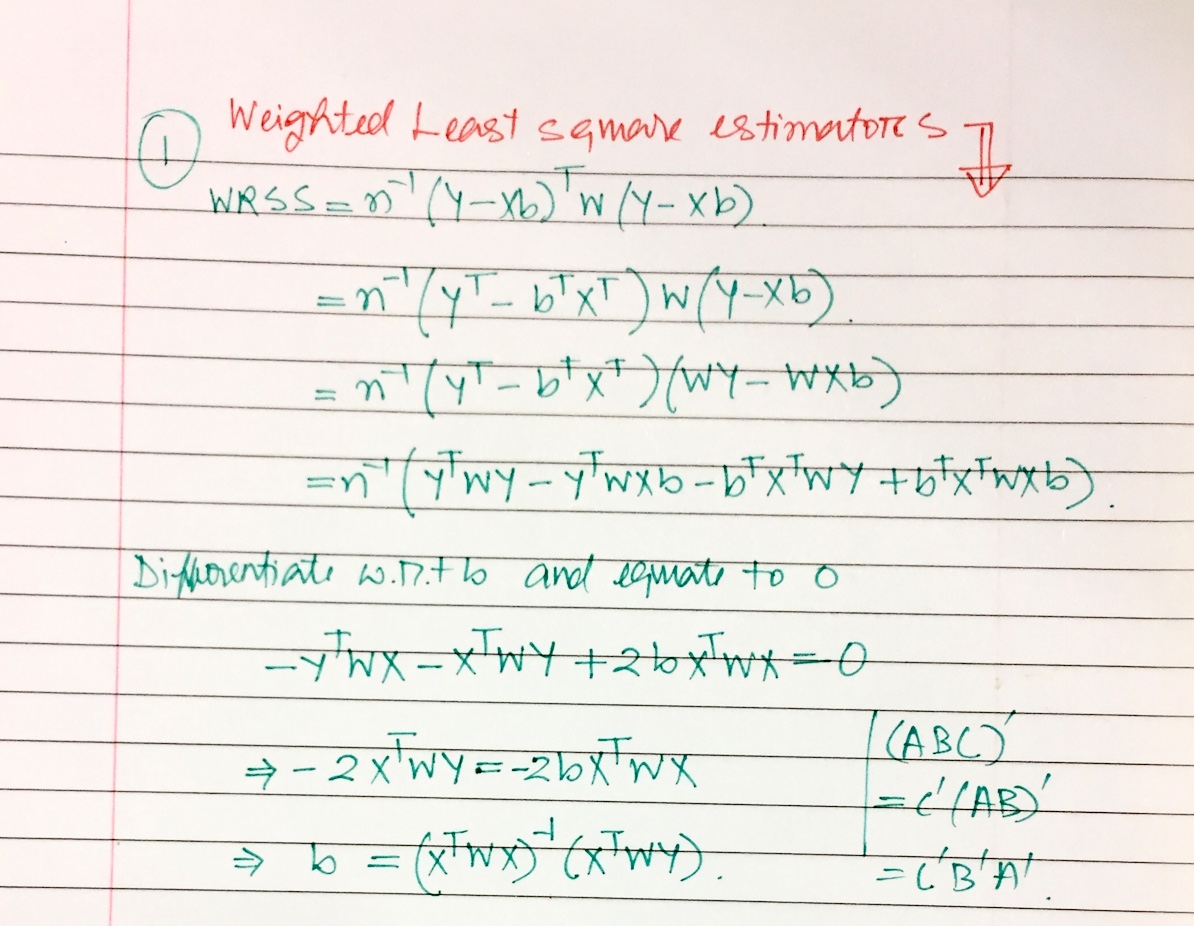 ① Weighted Least square estimators ⇓
WRSS = n⁻¹ (Y-Xb)ᵀ W (Y-Xb)
= n⁻¹ (Yᵀ - bᵀXᵀ) W (Y-Xb).
= n⁻¹ (Yᵀ - bᵀXᵀ) (WY - WXb)
= n⁻¹ (YᵀWY - YᵀWXb - bᵀXᵀWY + bᵀXᵀWXb).
Differentiate w.r.t b and equate to 0
-YᵀWX - XᵀWY + 2bXᵀWX = 0
⇒ -2XᵀWY = -2bXᵀWX
⇒ b = (XᵀWX)⁻¹ (XᵀWY).
(ABC)'
= C'(AB)'
= C'B'A'.